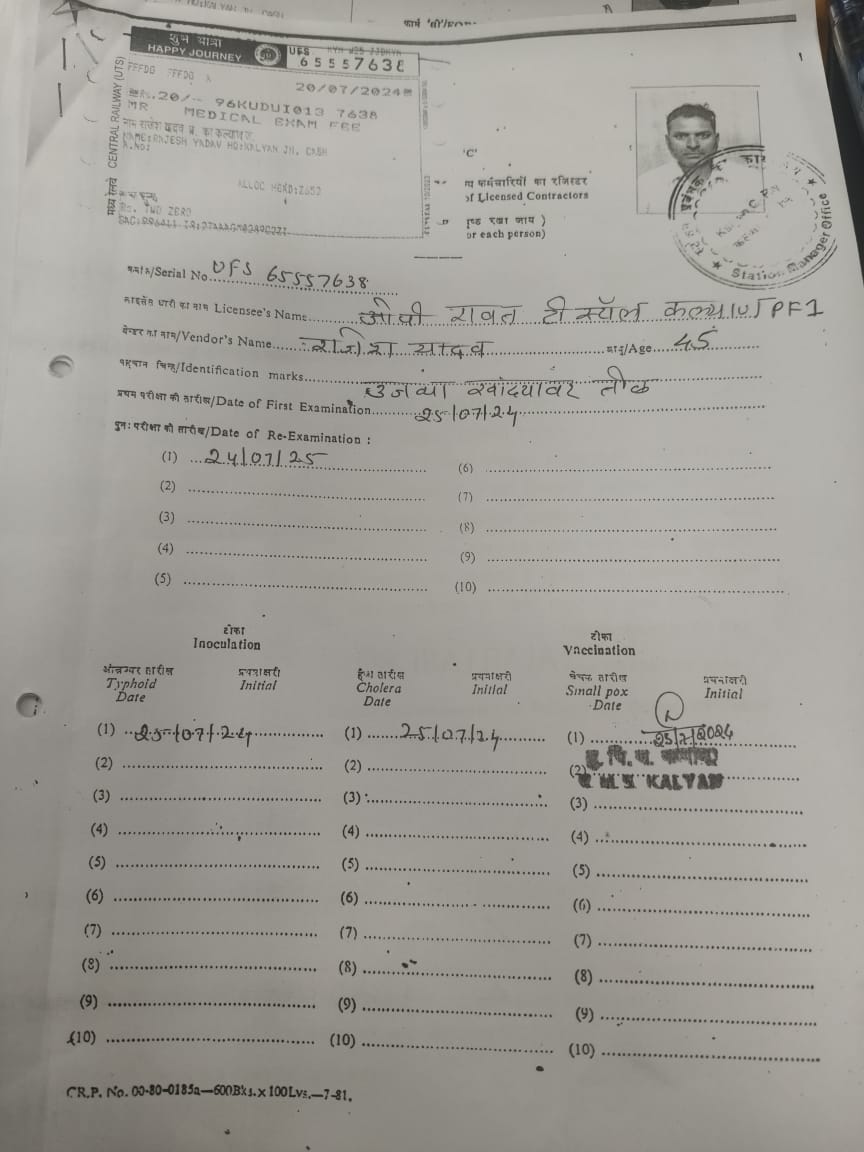 फार्म 'सी'/FORM
शुभ यात्रा
HAPPY JOURNEY
UFS
65557638
मध्य रेलवे CENTRAL RAILWAY (UTS)
FFFDG FFFDG
20/07/2024
Rs.20/- 96KUDUI013 7638
MR MEDICAL EXAM FEE
NAME:RAJESH YADAV HQ:KALYAN JN, CASH
A.NO:
ALLOC HEAD:Z652
Rs. TWO ZERO
'C'
कर्मचारियों का रजिस्टर
of Licensed Contractors
रखा जाय )
or each person)
Station Manager Office
क्रमांक/Serial No. UFS 65557638
लाइसेंस धारी का नाम Licensee's Name ओपी रावत टी स्टॉल कल्याण PF1
वेन्डर का नाम/Vendor's Name राजेश यादव आयु/Age 45
पहचान चिन्ह/Identification marks उजव्या खांद्यावर तीळ
प्रथम परीक्षा की तारीख/Date of First Examination 25/07/24
पुनः परीक्षा की तारीख/Date of Re-Examination :
(1) 24/07/25 (6)
(2) (7)
(3) (8)
(4) (9)
(5) (10)
टीका
Inoculation
टीका
Vaccination
तारीख
Typhoid
Date
Initial
हैजा तारीख
Cholera
Date
Initial
चेचक तारीख
Small pox
Date
Initial
(1) 25/07/24 (1) 25/07/24 (1) 25/7/2024
(2) (2) (2)
KALYAN
(3) (3) (3)
(4) (4) (4)
(5) (5) (5)
(6) (6) (6)
(7) (7) (7)
(8) (8) (8)
(9) (9) (9)
(10) (10) (10)
CR.P. No. 00-80-0185a—600Bks.x100Lvs.—7-81.